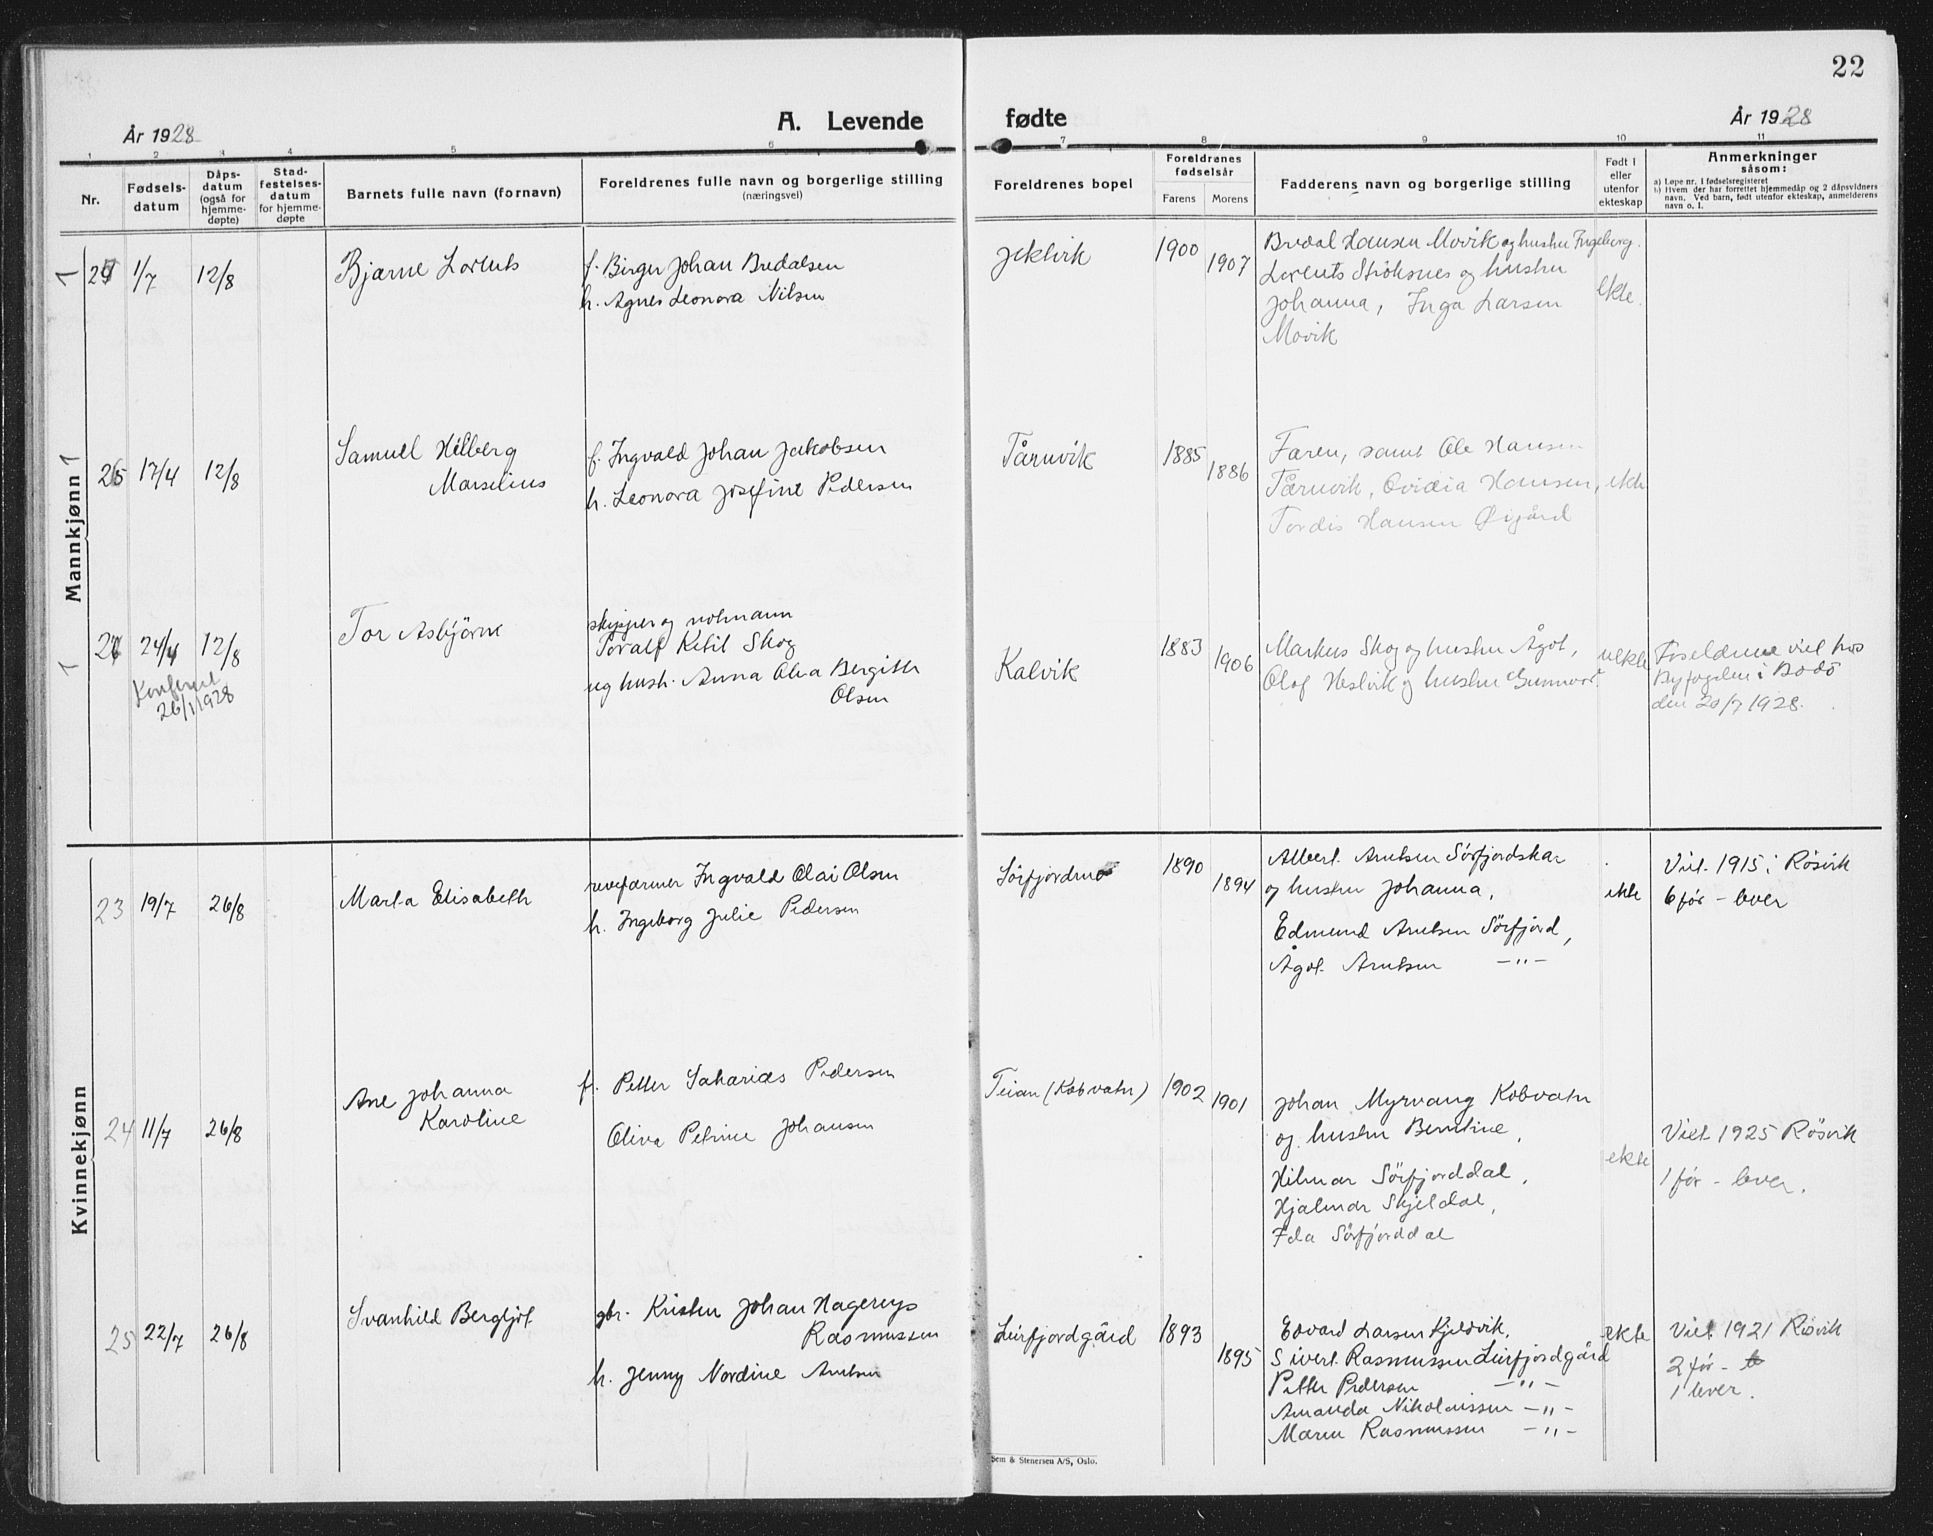 22
År 1928
A. Levende
fødte
År 1928
1 2 3 4 5 6 7 8 9 10 11
Nr.
Fødsels-
datum
Dåps-
datum
(også for
hjemme-
døpte)
Stad-
festelses-
datum
for hjemme-
døpte
Barnets fulle navn (fornavn)
Foreldrenes fulle navn og borgerlige stilling
(næringsvei)
Foreldrenes bopel
Foreldrenes
fødselsår
Farens
Morens
Fadderens navn og borgerlige stilling
Født i
eller
utenfor
ekteskap
Anmerkninger
såsom:
a) Løpe nr. i fødselsregisteret
b) Hvem der har forrettet hjemmedåp og 2 dåpsvidners
navn. Ved barn, født utenfor ekteskap, anmelderens
navn o. l.
Mannkjønn
1
1/7
12/8
Bjarne Lorents
f. Birger Johan Bredalsen
h. Agnes Leonora Nilsen
Jektvik
1900
1907
Bredal Hansen Movik og hustru Ingeborg.
Lorents Strøksnes og hustru
Johanna, Inga Larsen
Movik
ekte.
1
17/4
12/8
Samuel Hilberg
Marselius
f. Ingvald Johan Jakobsen
h. Leonora Josefine Pedersen
Tårnvik
1885
1886
Faren, samt Ole Hansen
Tårnvik, Ovidia Hansen,
Tordis Hansen Øigård
ekte
1
24/4
12/8
26/1 1928
Tor Asbjörn
skipper og notmann
Toralf Ketil Skog
og hust. Anna Alva Bergitte
Olsen
Kalvik
1883
1906
Markus Skog og hustru Ågot,
Olaf Hestvik og hustru Gunnvor
uekte
Foreldrene viet hos
Byfogden i Bodö
den 20/7 1928.
Kvinnekjønn
23
19/7
26/8
Marta Elisabeth
revefarmer Ingvald Olai Olsen
h. Ingeborg Julie Pedersen
Sörfjordmo
1890
1894
Albert Arntsen Sörfjordskar
og hustru Johanna,
Edmund Arntsen Sörfjord,
Ågot Arntsen -"-
ekte
Viet 1915 i Røsvik
6 før - lever
24
11/7
26/8
Ane Johanna
Karoline
f. Petter Sakarias Pedersen
Oliva Petrine Johansen
Teian (Kobvatn)
1902
1901
Johan Myrvang Kobvatn
og hustru Berntine,
Hilmar Sörfjorddal,
Hjalmar Skjeldal,
Ida Sörfjorddal
ekte
Viet 1925 Røsvik
1 før - lever.
25
22/7
26/8
Svanhild Bergljot
gbr. Kristen Johan Hagerup
Rasmussen
h. Jenny Nordine Arntsen
Leirfjordgård
1893
1895
Edvard Larsen Kjeldvik,
Sivert Rasmussen Leirfjordgård
Petter Pedersen -"-
Amanda Nikolaissen -"-
Maren Rasmussen -"-
ekte
Viet 1921 Røsvik
2 før -
1 lever.
Sem & Stenersen A/S, Oslo.